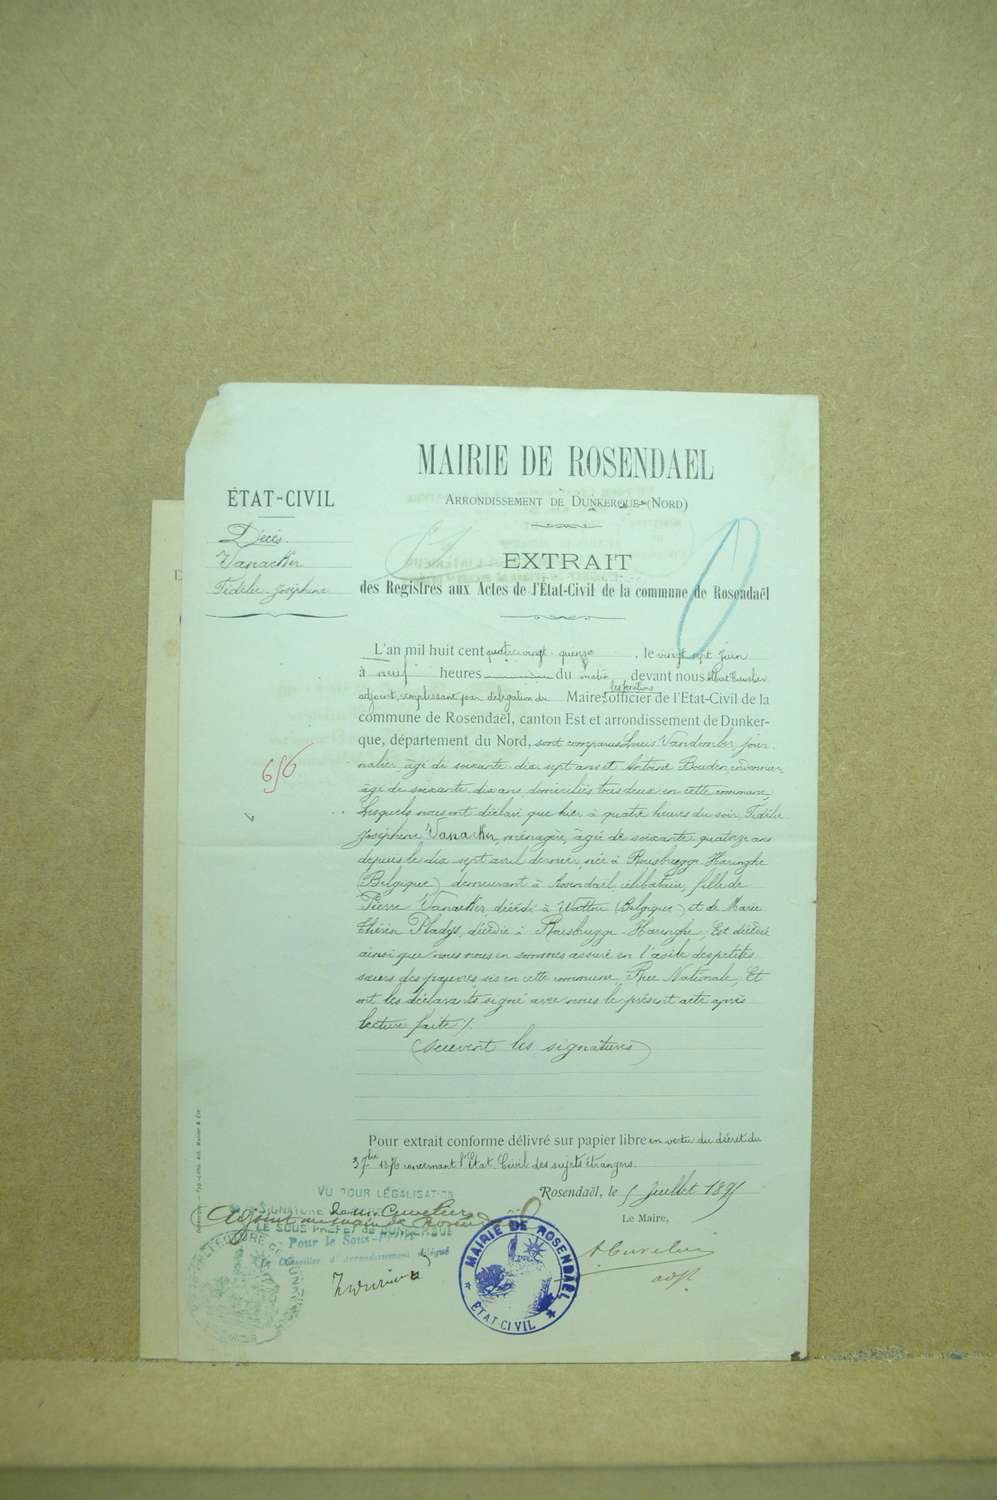 MAIRIE DE ROSENDAEL
ARRONDISSEMENT DE DUNKERQUE (NORD)
ÉTAT-CIVIL
Décès.
Vanacker
Fidélie-Joséphine
EXTRAIT
des Registres aux Actes de l'État-Civil de la commune de Rosendaël
L'an mil huit cent quatre vingt-quinze, le vingt sept Juin
à neuf heures du matin devant nous
adjoint, remplissant par délégation du Maire les fonctions officier de l'Etat-Civil de la
commune de Rosendaël, canton Est et arrondissement de Dunker-
que, département du Nord, sont comparus Louis Vandomber jour
nalier, âgé de soixante dix sept ans et Antoine Bouden, cordonnier
âgé de soixante dix ans domiciliés tous deux en cette commune,
Lesquels nous ont déclaré que hier à quatre heures du soir, Fidélie
Joséphine Vanacker, ménagère, âgée de soixante quatorze ans
depuis le dix sept avril dernier, née à Rousbrugge Haringhe
(Belgique) demeurant à Rosendaël célibataire, fille de
Pierre Vanacker, décédé à Watou (Belgique) et de Marie
Thérèse Pladys, décédée à Rousbrugge-Haringhe; Est décédée
ainsi que nous nous en sommes assuré en l'asile des petites
sœurs des pauvres, sis en cette commune, Rue Nationale, Et
ont les déclarants signé avec nous le présent acte après
lecture faite /.
(suivent les signatures)
656
Pour extrait conforme délivré sur papier libre en vertu du décret du
concernant l'État Civil des sujets étrangers.
Rosendaël, le 5 Juillet 1895
Le Maire,
A Cuvelier
adjt
VU POUR LÉGALISATION
SIGNATURE de M. Cuvelier
Adjoint au maire de Rosendaël
LE SOUS PRÉFET DE DUNKERQUE
Pour le Sous-Préfet
Le Conseiller d'arrondissement délégué
MAIRIE DE ROSENDAËL
ÉTAT-CIVIL